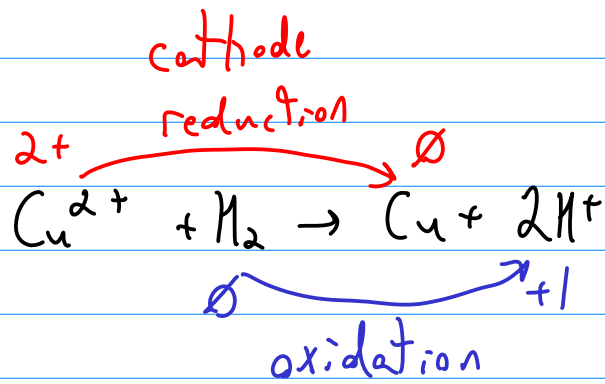 cathode
reduction
2+ Ø
Cu²⁺ + H₂ → Cu + 2H⁺
Ø +1
oxidation